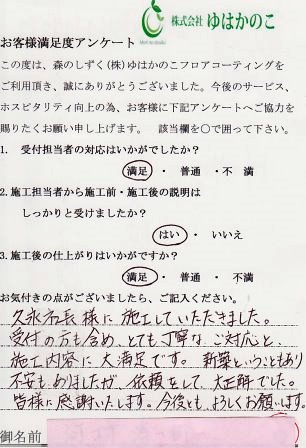 株式会社 ゆはかのこ
お客様満足度アンケート
この度は、森のしずく(株)ゆはかのこフロアコーティングを
ご利用頂き、誠にありがとうございました。今後のサービス、
ホスピタリティ向上の為、お客様に下記アンケートへご協力を
賜りたくお願い申し上げます。 該当欄を〇で囲って下さい。
1. 受付担当者の対応はいかがでしたか？
満足 ・ 普通 ・不 満
2.施工担当者から施工前・施工後の説明は
しっかりと受けましたか？
はい ・ いいえ
3.施工後の仕上がりはいかがですか？
満足 ・ 普通 ・ 不満
お気付きの点がございましたら、ご記入ください。
久永市長様に施工していただきました。
受付の方も含め、とても丁寧なご対応と、
施工内容に大満足です。新築ということもあり
不安もありましたが、依頼をして大正解でした。
皆様に感謝いたします。今後とも、よろしくお願います。
御名前